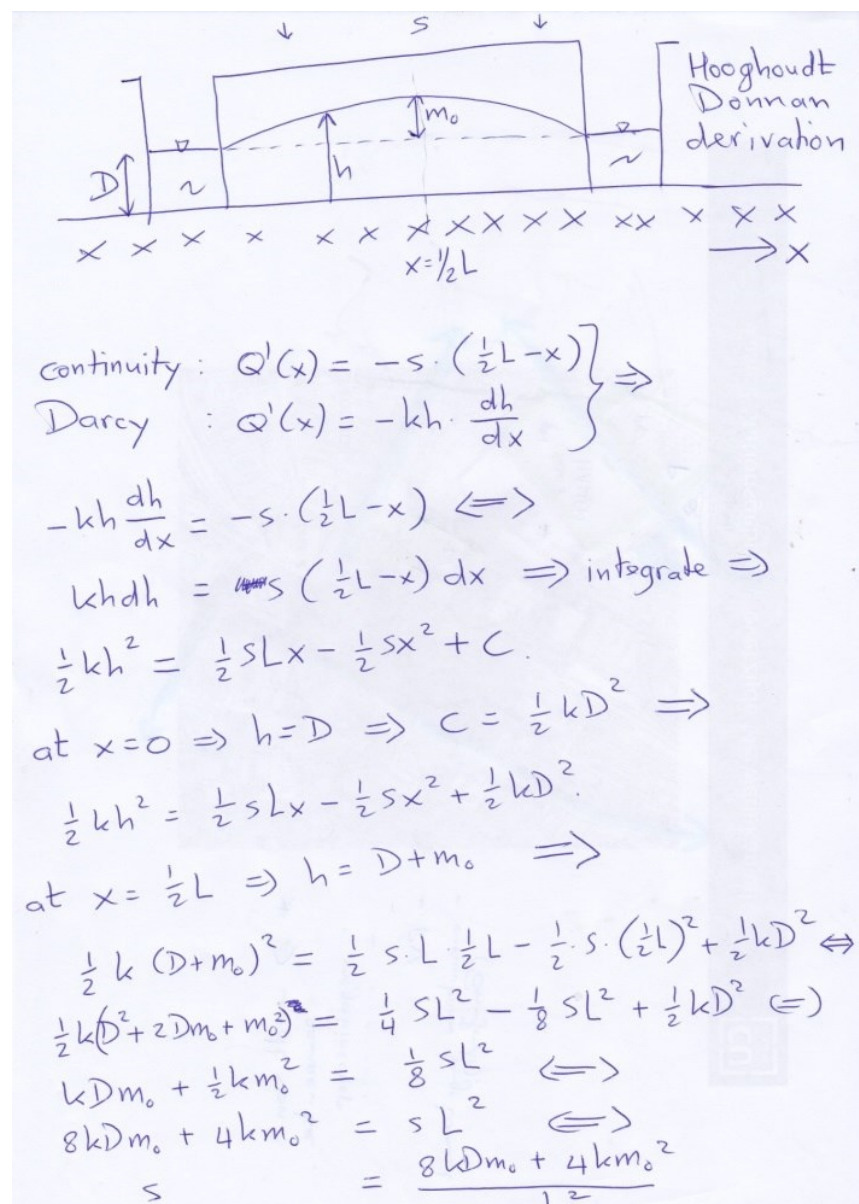 ↓ S ↓
Hooghoudt
Donnan
derivation
m₀
D
h
x x x x x x x x x x x xx x x x
x=½L → x
continuity : Q'(x) = -s · (½L - x) } ⇒
Darcy : Q'(x) = -kh · dh/dx
-kh dh/dx = -s · (½L - x) ⇔
khdh = s (½L - x) dx ⇒ integrate ⇒
½kh² = ½sLx - ½sx² + C.
at x=0 ⇒ h=D ⇒ C = ½kD² ⇒
½kh² = ½sLx - ½sx² + ½kD².
at x = ½L ⇒ h = D+m₀ ⇒
½k (D+m₀)² = ½ s·L ½L - ½·s·(½L)² + ½kD² ⇔
½k(D² + 2Dm₀ + m₀²) = ¼ sL² - ⅛ sL² + ½kD² ⇔
kDm₀ + ½km₀² = ⅛ sL² ⇔
8kDm₀ + 4km₀² = sL² ⇔
s = (8kDm₀ + 4km₀²) / L²